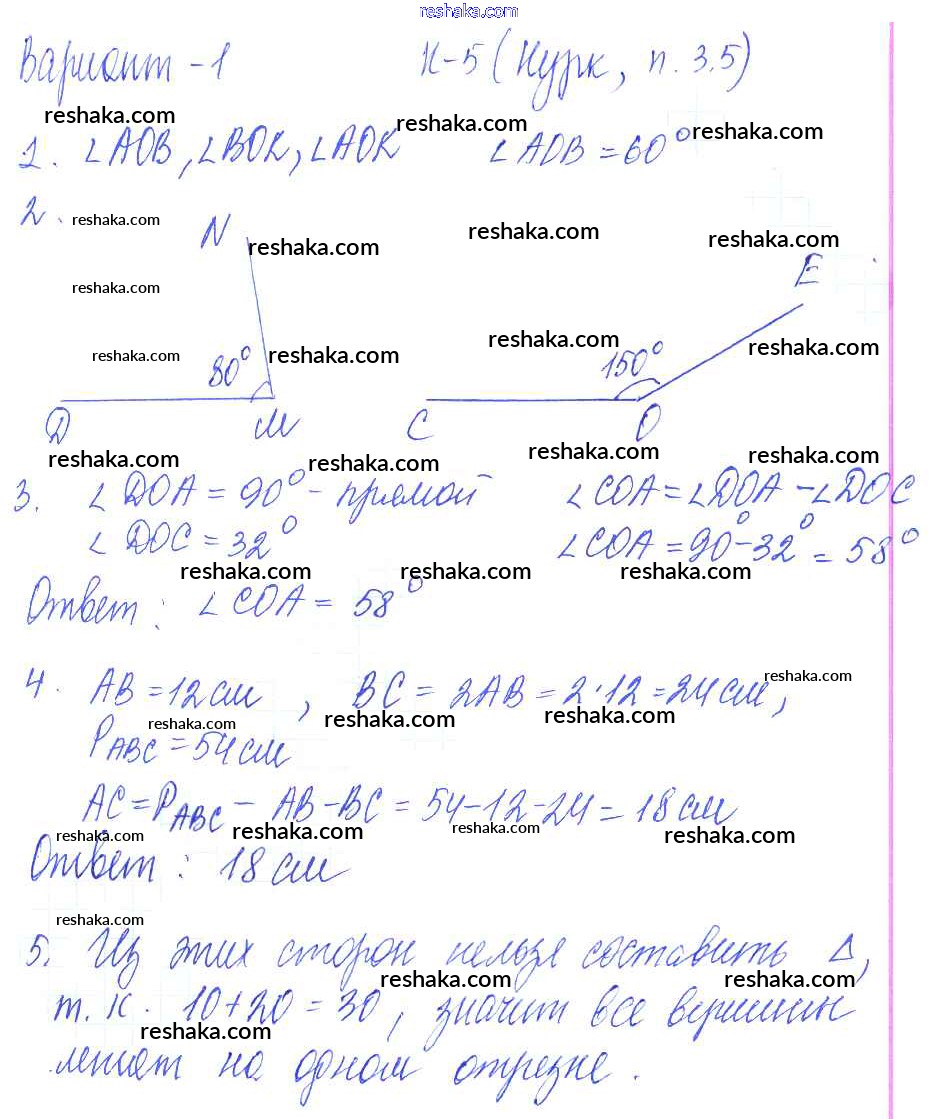 reshaka.com
Вариант - 1 К-5 (Нурк, п. 3.5)
reshaka.com reshaka.com reshaka.com
1. ∠AOB, ∠BOK, ∠AOK ∠AOB = 60°
2. reshaka.com N reshaka.com reshaka.com reshaka.com
reshaka.com E
reshaka.com 80° reshaka.com reshaka.com 150° reshaka.com
D M C O
reshaka.com reshaka.com reshaka.com reshaka.com
3. ∠DOA = 90° - прямой ∠COA = ∠DOA - ∠DOC
∠DOC = 32° ∠COA = 90° - 32° = 58°
reshaka.com reshaka.com reshaka.com
Ответ: ∠COA = 58°
4. AB = 12 см, BC = 2AB = 2·12 = 24 см,
reshaka.com
reshaka.com reshaka.com reshaka.com
P ABC = 54 см
AC = P ABC - AB - BC = 54 - 12 - 24 = 18 см
reshaka.com reshaka.com reshaka.com reshaka.com
Ответ: 18 см
reshaka.com
5. Из этих сторон нельзя составить Δ,
reshaka.com reshaka.com reshaka.com
т.к. 10 + 20 = 30, значит все вершины
reshaka.com reshaka.com reshaka.com
лежат на одном отрезке.